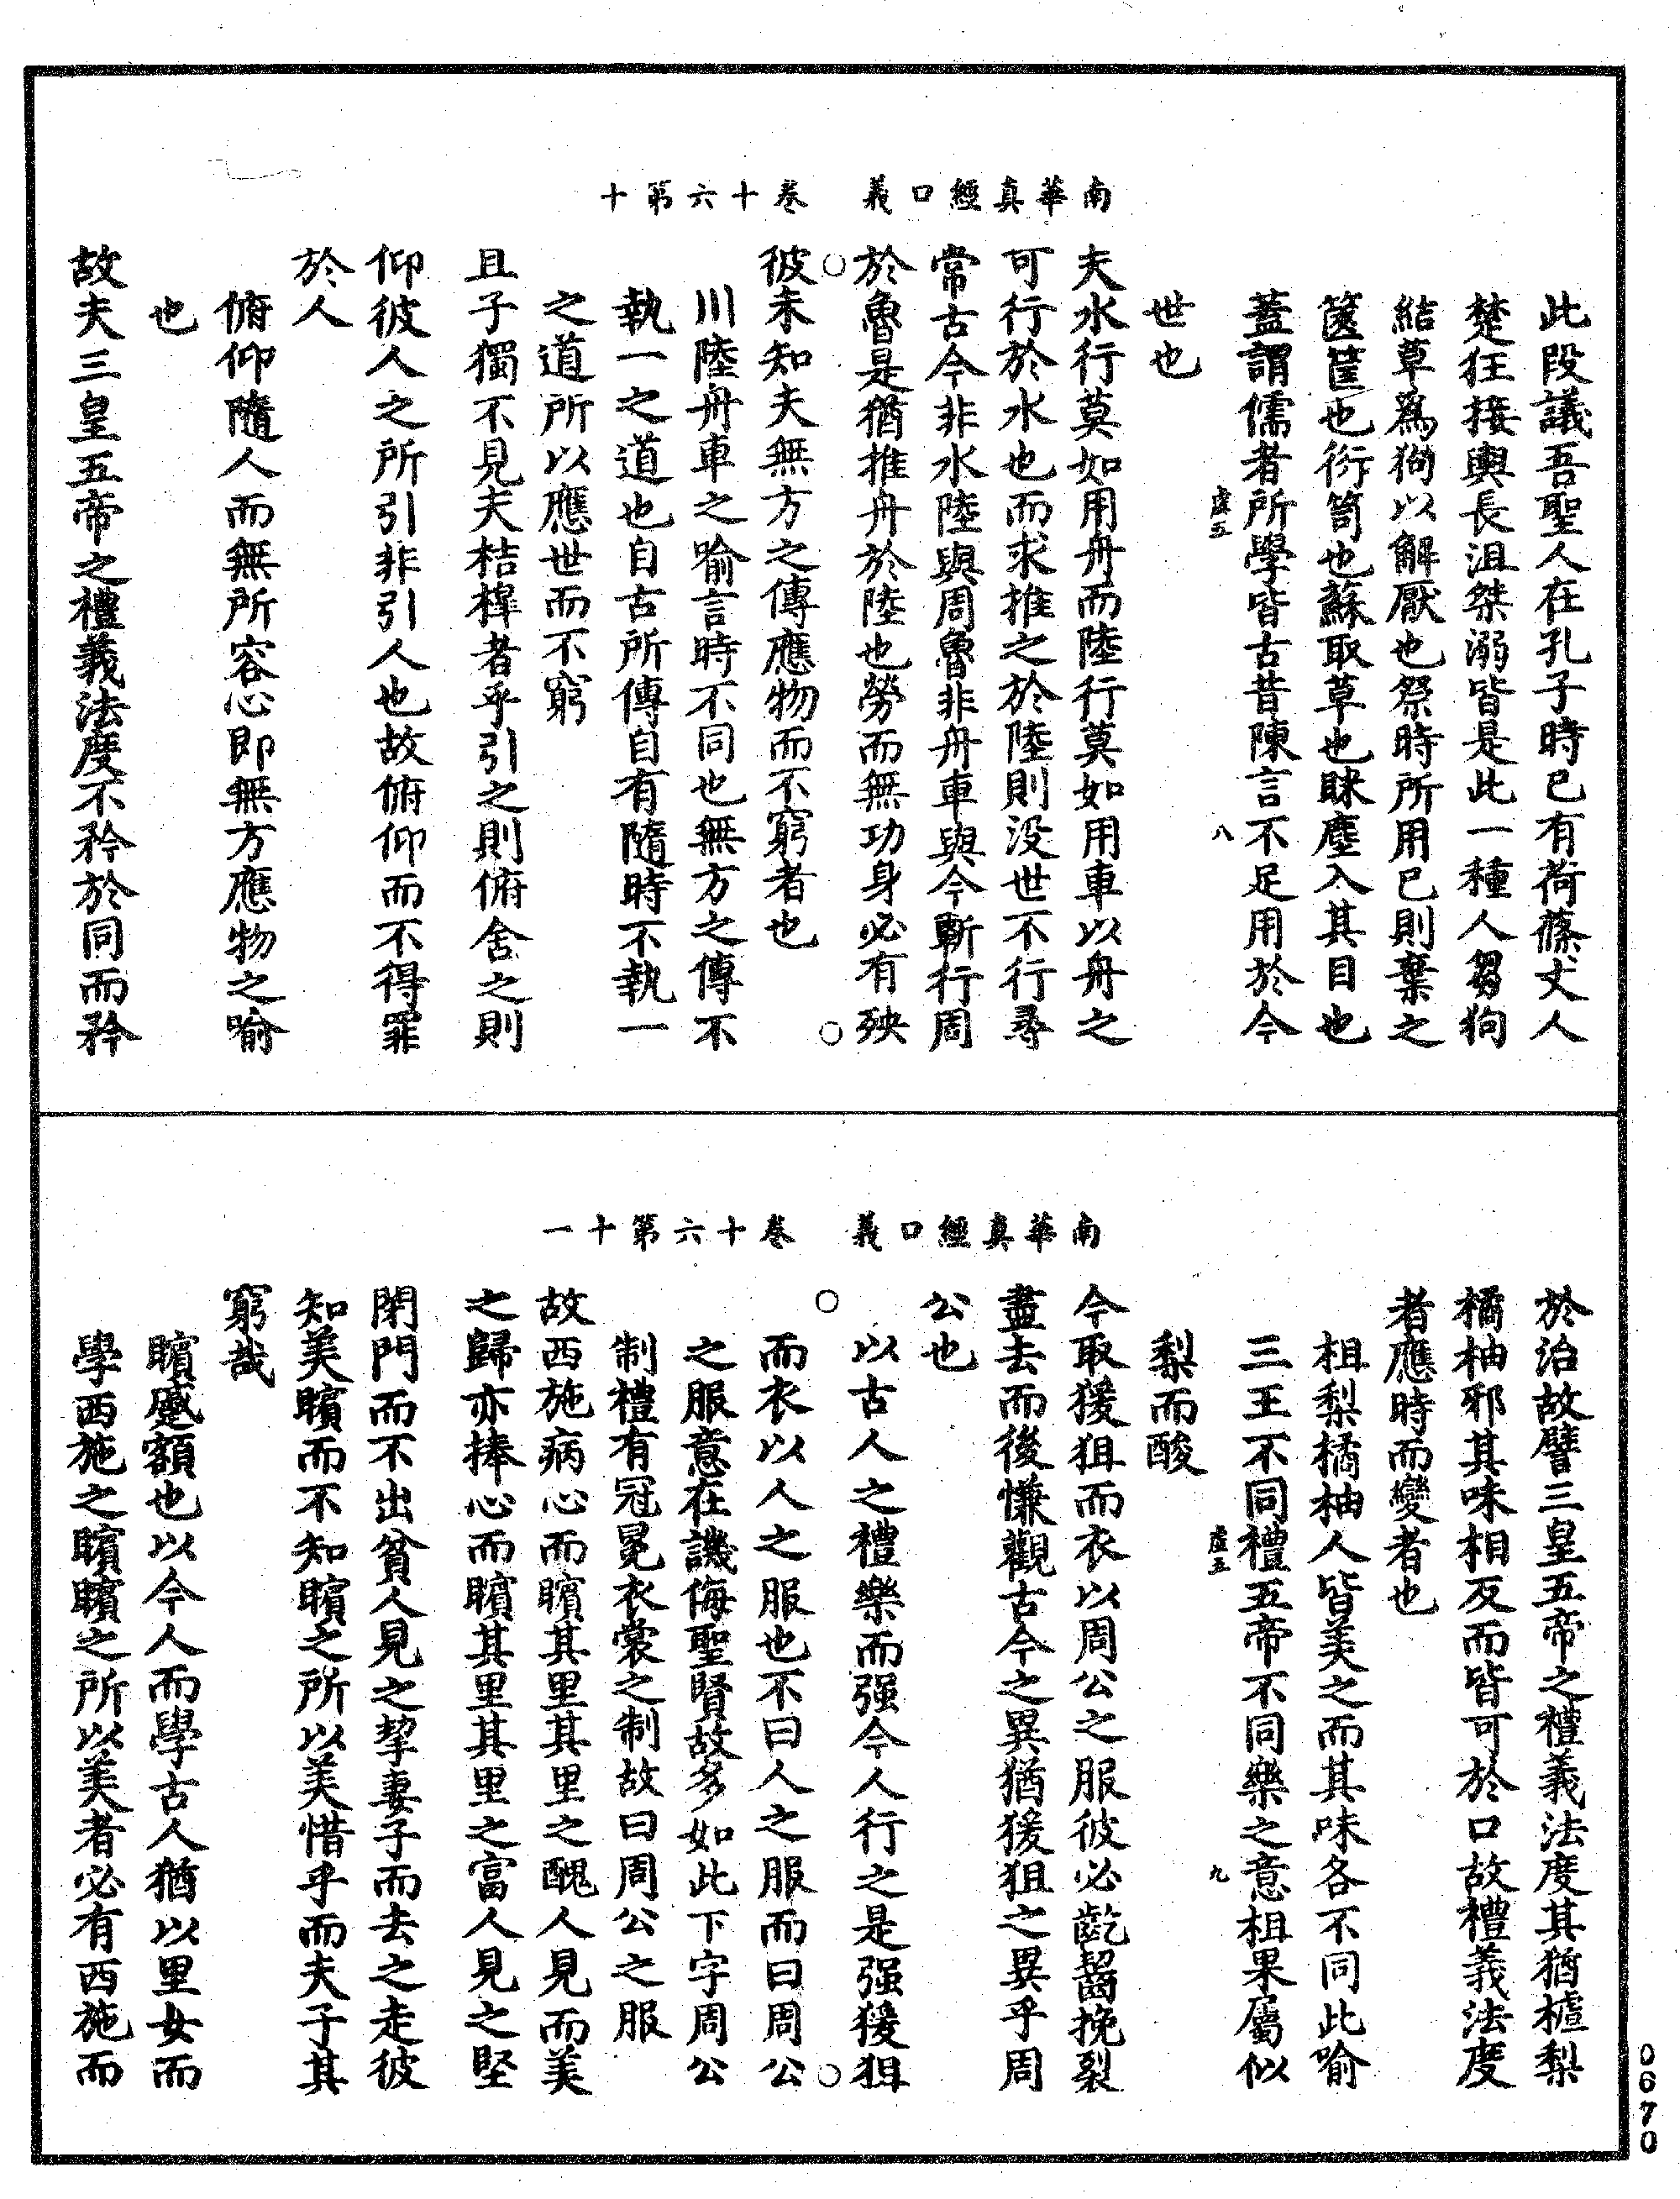 南華真經口義　卷十六第十
此段議吾聖人在孔子時已有荷蓧丈人
楚狂接輿長沮桀溺皆是此一種人芻狗
結草為狗以解厭也祭時所用已則棄之
篋筐也衍笥也蘇取草也眯塵入其目也
蓋謂儒者所學皆古昔陳言不足用於今
虛五　八
世也
夫水行莫如用舟而陸行莫如用車以舟之
可行於水也而求推之於陸則没世不行尋
常古今非水陸與周魯非舟車與今蘄行周
於魯是猶推舟於陸也勞而無功身必有殃
彼未知夫無方之傳應物而不窮者也
川陸舟車之喻言時不同也無方之傳不
執一之道也自古所傳自有隨時不執一
之道所以應世而不窮
且子獨不見夫桔槹者乎引之則俯舍之則
仰彼人之所引非引人也故俯仰而不得罪
於人
俯仰隨人而無所容心即無方應物之喻
也
故夫三皇五帝之禮義法度不矜於同而矜
南華真經口義　卷十六第十一
於治故譬三皇五帝之禮義法度其猶樝梨
橘柚邪其味相反而皆可於口故禮義法度
者應時而變者也
柤梨橘柚人皆美之而其味各不同此喻
三王不同禮五帝不同樂之意柤果屬似
虛五　九
梨而酸
今取猨狙而衣以周公之服彼必齕齧挽裂
盡去而後慊觀古今之異猶猨狙之異乎周
公也
以古人之禮樂而强今人行之是强猨狙
而衣以人之服也不曰人之服而曰周公
之服意在譏侮聖賢故多如此下字周公
制禮有冠冕衣裳之制故曰周公之服
故西施病心而矉其里其里之醜人見而美
之歸亦捧心而矉其里其里之富人見之堅
閉門而不出貧人見之挈妻子而去之走彼
知美矉而不知矉之所以美惜乎而夫子其
窮哉
矉蹙額也以今人而學古人猶以里女而
學西施之矉矉之所以美者必有西施而
0670